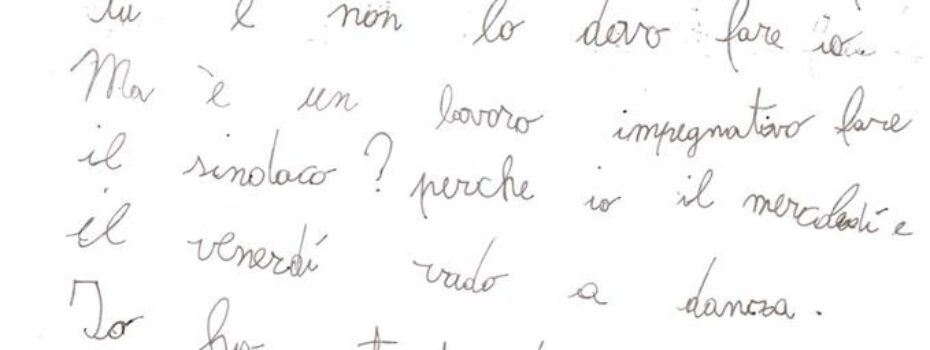 tu e non lo devo fare io.
Ma è un lavoro impegnativo fare
il sindaco? perche io il mercoledì e
il venerdì vado a danza.
Io ho